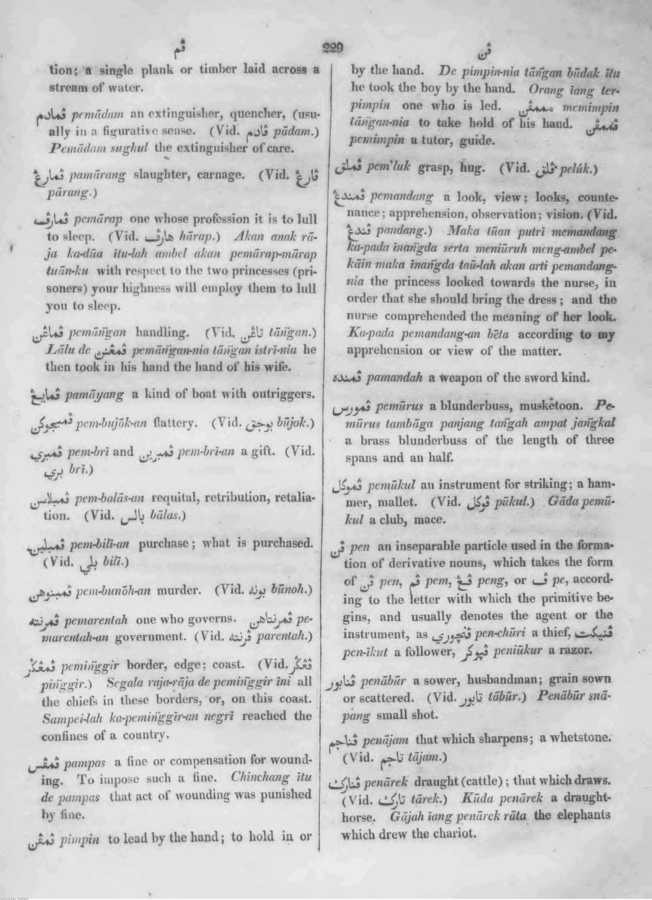 ڤم
229
ڤن
tion; a single plank or timber laid across a
stream of water.
ڤمادم pemādam an extinguisher, quencher, (usu-
ally in a figurative sense. (Vid. ڤادم pādam.)
Pemādam sughul the extinguisher of care.
ڤمارڠ pamārang slaughter, carnage. (Vid. ڤارڠ
pārang.)
ڤمارف pemārap one whose profession it is to lull
to sleep. (Vid. هارف hārap.) Akan anak rā-
ja ka-dūa itu-lah ambel akan pemārap-mārap
tuān-ku with respect to the two princesses (pri-
soners) your highness will employ them to lull
you to sleep.
ڤماڠن pemāngan handling. (Vid. تاڠن tāngan.)
Lālu de ڤمڠن pemāngan-nia tāngan istrī-nia he
then took in his hand the hand of his wife.
ڤمايڠ pamāyang a kind of boat with outriggers.
ڤمبجوكن pem-bujōk-an flattery. (Vid. بوجق būjok.)
ڤمبري pem-brī and ڤمبرين pem-brī-an a gift. (Vid.
بري brī.)
ڤمبلاسن pem-balās-an requital, retribution, retalia-
tion. (Vid. بالس bālas.)
ڤمبلين pem-bilī-an purchase; what is purchased.
(Vid. بلي bilī.)
ڤمبنوهن pem-bunōh-an murder. (Vid. بونه būnoh.)
ڤمرنته pemarentah one who governs. ڤمرنتاهن pe-
marentah-an government. (Vid. ڤرنته parentah.)
ڤمڠكر peminggir border, edge; coast. (Vid. ڤڠكر
pinggir.) Segala raja-rāja de peminggir īni all
the chiefs in these borders, or, on this coast.
Sampei-lah ka-peminggir-an negrī reached the
confines of a country.
ڤمڤس pampas a fine or compensation for wound-
ing. To impose such a fine. Chinchang ītu
de pampas that act of wounding was punished
by fine.
ڤمڤن pimpin to lead by the hand; to hold in or
by the hand. De pimpin-nia tāngan būdak ītu
he took the boy by the hand. Orang īang ter-
pimpin one who is led. ممڤن memimpin
tāngan-nia to take hold of his hand. ڤممڤن
pemimpin a tutor, guide.
ڤملق pem'luk grasp, hug. (Vid. ڤلق pelúk.)
ڤمندڠ pemandang a look, view; looks, counte-
nance; apprehension, observation; vision. (Vid.
ڤندڠ pandang.) Maka tūan putrī memandang
ka-pada īnangda serta menīuruh meng-ambel pe-
kāin maka īnangda taū-lah akan arti pemandang-
nia the princess looked towards the nurse, in
order that she should bring the dress; and the
nurse comprehended the meaning of her look.
Ka-pada pemandang-an bēta according to my
apprehension or view of the matter.
ڤمنده pamandah a weapon of the sword kind.
ڤمورس pemūrus a blunderbuss, musketoon. Pe-
mūrus tambāga panjang tangah ampat jangkal
a brass blunderbuss of the length of three
spans and an half.
ڤموكل pemūkul an instrument for striking; a ham-
mer, mallet. (Vid. ڤوكل pūkul.) Gāda pemū-
kul a club, mace.
ڤن pen an inseparable particle used in the forma-
tion of derivative nouns, which takes the form
of ڤن pen, ڤم pem, ڤڠ peng, or ڤ pe, accord-
ing to the letter with which the primitive be-
gins, and usually denotes the agent or the
instrument, as ڤنچوري pen-chūri a thief, ڤنيكت
pen-īkut a follower, ڤيوكر penīukur a razor.
ڤنابور penābūr a sower, husbandman; grain sown
or scattered. (Vid. تابور tābūr.) Penābūr snā-
pang small shot.
ڤناجم penājam that which sharpens; a whetstone.
(Vid. تاجم tājam.)
ڤنارك penārek draught (cattle); that which draws.
(Vid. تارك tārek.) Kūda penārek a draught-
horse. Gājah īang penārek rāta the elephants
which drew the chariot.